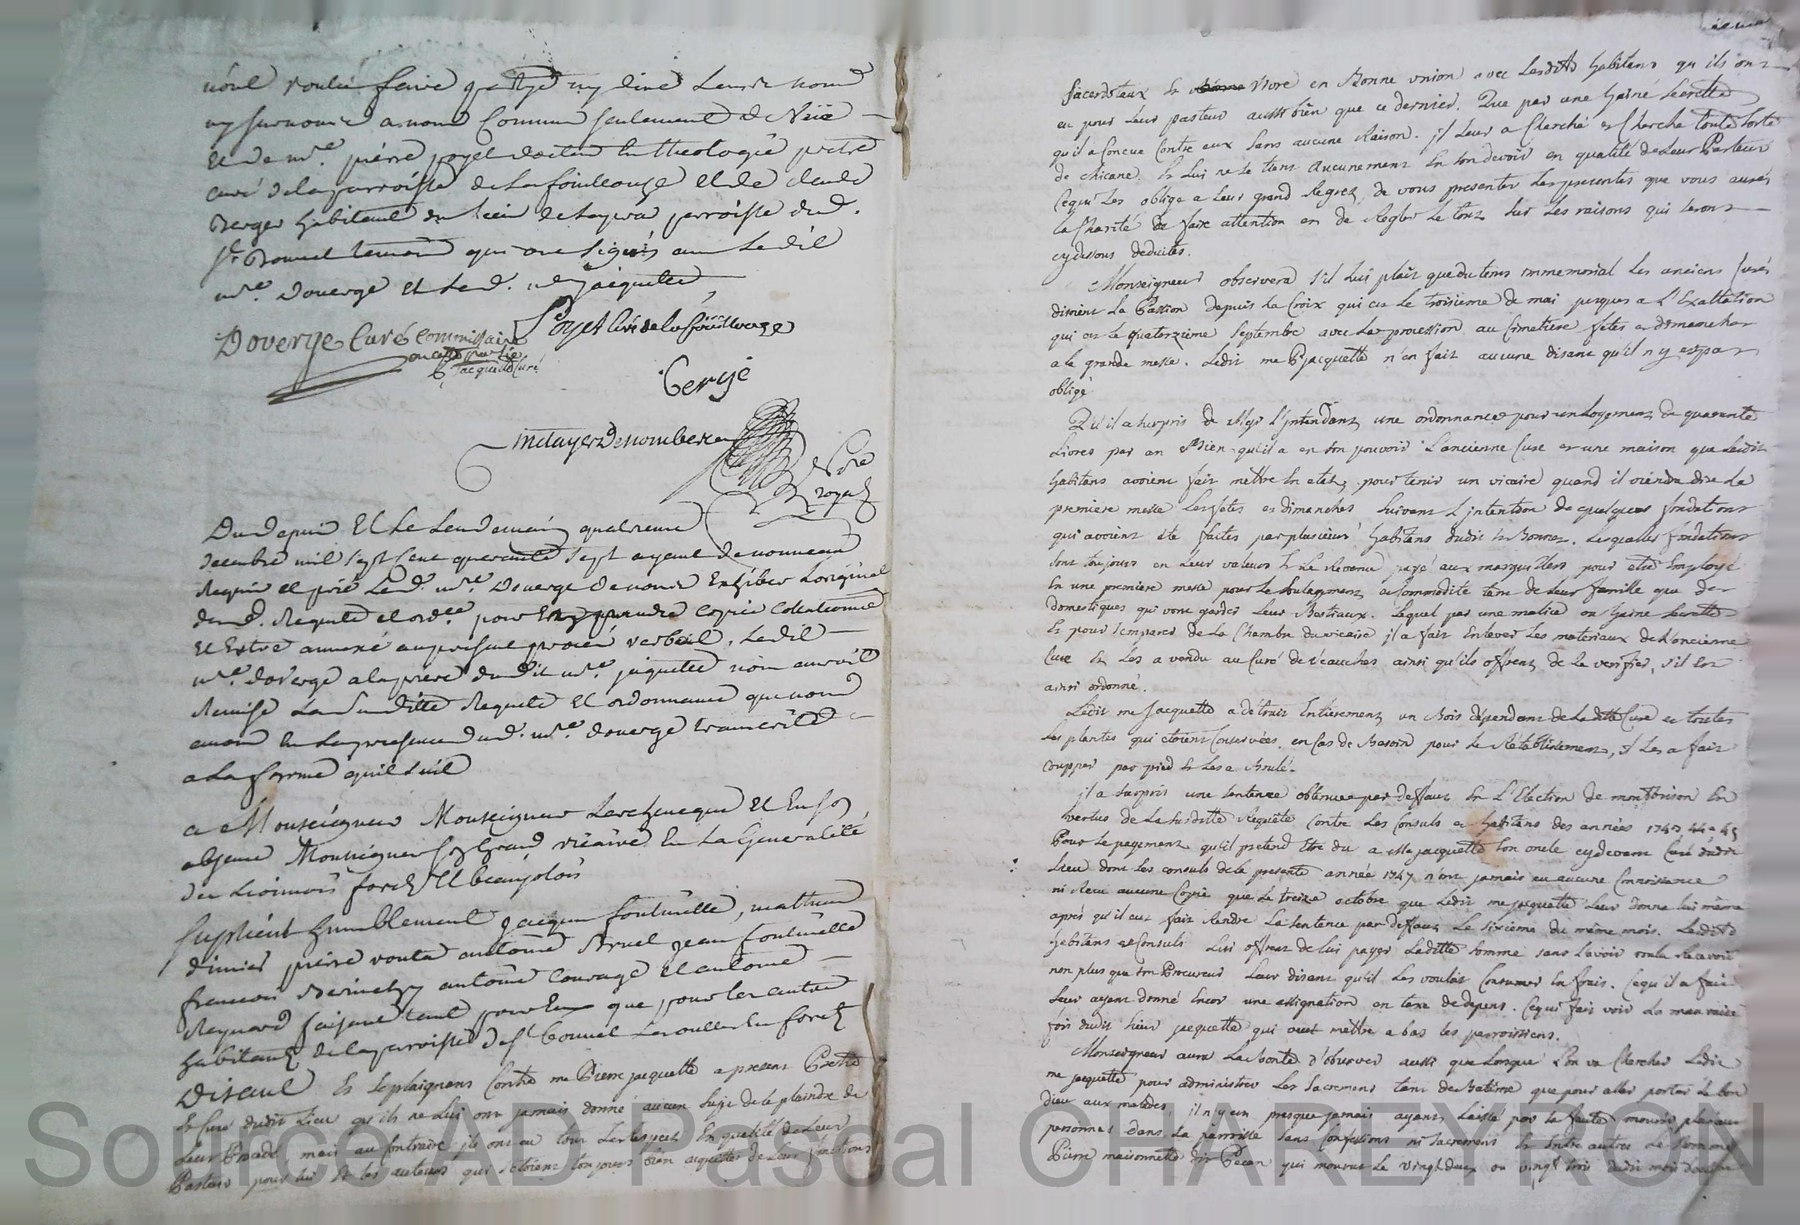 voulu faire quoyque
Et de mre. pierre poyet docteur En theologie pretre
curé de la parroisse de La fouillouse Et de claude
Berger habitant du lieu de parroisse dud.
St. Bonnet temoins qui ont signés avec Le dit
mre. Doverge Et Led. mre jacquette
Doverge Curé Commissaire
Poyet curé de la fouillouse
jacquette Curé
Bergé
Nore
royal
Du depuis Et Le Lendemain quatrieme
decembre mil sept Cent quarante sept ayant de nouveau
Requis et prié Led. mre. Doverge de nous Exhiber Loriginal
desd. Requete et ordce. pour En prendre copie Collationnée
Et Estre annexé au present procés verbail, Le dit
mre. doverge a la priere dudit mre. jaquette nous auroit
Remise La Susditte Requete Et ordonnance que nous
avons En La presence dud. mre. doverge transcritte
a La forme quil suit
a Monseigneur Monseigneur Larchevéque Et En son
absence Monseigneur son Grand vicaire En La Generalité
des Lionnois forez Et beaujolois
Suplient humblement jacques fontvieille, mathieu
pierre antoine Bruel jean fontvieille
francois antoine Courage Et antoine
Reynard faisant tant pour Eux que pour les autres
habitants de la parroisse de St. Bonnet Les oulles En forez
Disant Et se plaignent Contre me Pierre jacquette a present Pretre
Et Curé dudit Lieu qu'ils ne Lui ont jamais donné aucun Sujet de se plaindre de
Leur Procedé mais au Contraire ils ont eu tout Le respect En qualité de Leur
Pasteur pour lui Et les autheurs qui s'etoient toujours bien aquittés de Leur fonctions
sacerdoteaux Et vivre en Bonne union avec Lesdits habitans qu'ils ont
eu pour Leur pasteur aussi bien que ce dernier. Que par une haine Secrette
qu'il a Concue Contre eux sans aucune Raison. il Leur a Cherché et Cherche toute Sorte
de chicane. Et Lui ne se tient aucunement En son devoir en qualité de Leur Pasteur
Cequi Les oblige a Leur grand Regret de vous presenter Les presentes que vous aurés
la Charité de faire attention et de Regler Le tout Sur Les raisons qui seront
cydessous deduites.
Monseigneur observera s'il Lui plait que du tems immemorial Les anciens Curés
disoient La Passion depuis La Croix qui est Le troisieme de mai jusques a L'Exaltation
qui est Le quatorzieme Septembre avec La procession au Cimetiere fetes et dimanches
a la grande messe. Ledit me Pjacquette n'en fait aucune disant qu'il n'y est pas
obligé
Qu'il a surpris de Mgr L'jntendant une ordonnance pour un Logement de quarante
Livres par an Bien qu'il a en son pouvoir L'ancienne Cure et une maison que Lesdits
habitans avoient fait mettre En etat pour tenir un vicaire quand il viendra dire La
premiere messe Les fetes et dimanches suivant L'jntention de quelques fondations
qui avoient été faites par plusieurs habitans dudit St Bonnet. Lesquelles fondations
sont toujours en Leur valeurs Et Le Revenu payé aux marguilliers pour etre Employé
En une premiere messe pour Le Soulagement et Commodité tant de Leur famille que des
domestiques qui vont garder Leur Bestiaux. Lequel par une malice ou haine Secrette
Et pour S'emparer de La Chambre du vicaire il a fait Enlever Les materiaux de L'ancienne
Cure Et Les a vendu au Curé de Veauches ainsi qu'ils offrent de le verifier, s'il est
ainsi ordonné.
Ledit me Jacquette a détruit Entierement un Bois dépendant de Laditte Cure et toutes
Les plantes qui etoient Conservées en Cas de Besoin pour Le Rétablissement, il Les a fait
coupper par pied Et Les a Brulé.
il a Surpris une Sentence obtenue par deffaut En L'Election de montbrison En
vertus de La Susditte Requete Contre Les Consuls et habitans des années 1743 44 et 45
Pour Le payement qu'il pretend Etre du a me jacquette son oncle cydevant Curé dudit
Lieu dont Les consuls de la presente année 1747 n'ont jamais eu aucune Connoissance
ni Receu aucune Copie que Le treize octobre que Ledit me jacquette Leur donna lui même
aprés qu'il eut fait Rendre La Sentence par deffaut Le Sixième du même mois. Lesdits
habitans et Consuls Lui offrent de lui payer Laditte Somme sans L'avoir voulu Recevoir
non plus que son Procureur Leur disant qu'il Les vouloit Consumer En frais. Cequ'il a fait
Leur ayant donné Encor une assignation en taxe de depens. Cequi fait voir La mauvaise
fois dudit Sieur jacquette qui veut mettre a bas Les parroissiens.
Monseigneur aura La bonté d'observer aussi que Lorsque L'on va Chercher Ledit
me jacquette pour administrer Les Sacremens tant de Batême que pour aller porter Le bon
dieu aux malades, il n'y est presque jamais ayant Laissé par Sa faute mourir plusieurs
personnes dans La parroisse Sans Confessions ni Sacremens Et Entre autres Le nommé
Pierre maisonnette dit Pecan qui mourut Le vingt deux ou vingt trois dudit mois d'octobre
Source AD Pascal CHARLEYRON